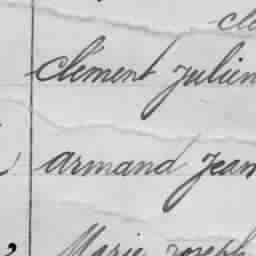 cle
clément Julien
armand Jean
Marie Joseph